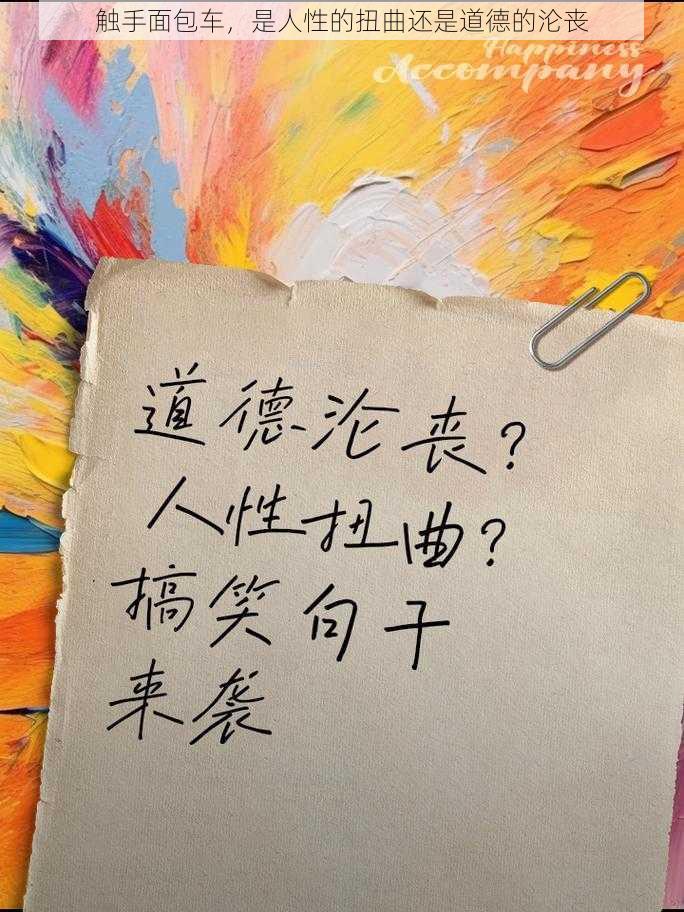 触手面包车，是人性的扭曲还是道德的沦丧
Happiness
Accompany
道德沦丧?
人性扭曲?
搞笑句子
来袭